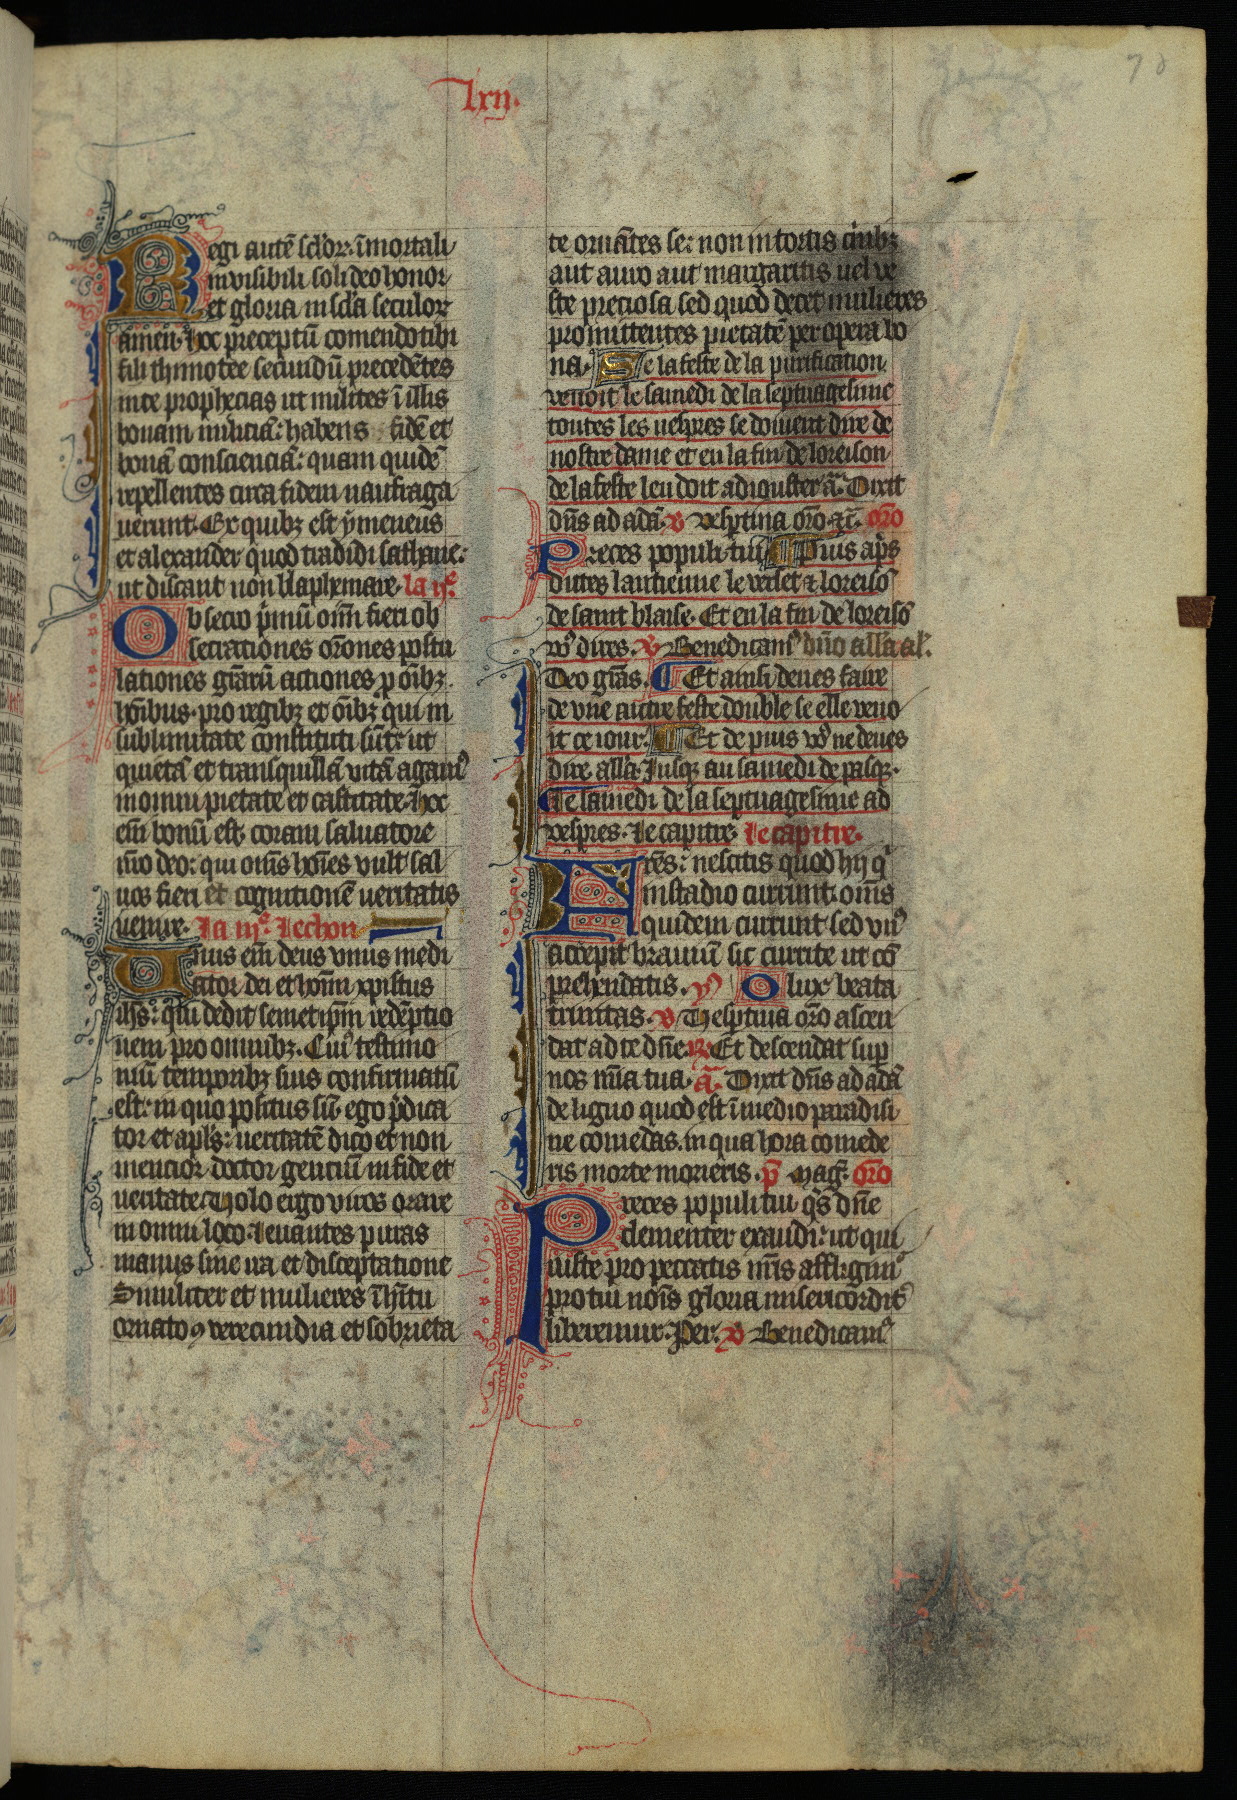 lxii.
70
Regi autē sclo̅ꝝ: īmortali
inuisibili soli deo honor
et gloria in sc̄la seculoꝝ
amen. hoc preceptū comendo tibi
fili thimotee secundū precedētes
in te prophecias ut milites ī illis
bonam miliciā: habens fidē et
bonā conscienciā: quam quidē
repellentes circa fidem naufraga
uerunt. Ex quibꝫ est ymeneus
et alexander quod tradidi sathane:
ut discant non blasphemare. la ijͤ.
Obsecro p̄mū om̄ fieri ob
secrationes or̄ones postu
lationes gr̄arū actiones ꝓ oībꝫ
hoībus. pro regibꝫ et oībꝫ qui in
sublimitate cōstituti sūt: ut
quietā et tranquillā uitā agamꝰ
in omni pietate et castitate. hoc
em̄ bonū est coram saluatore
nr̄o deo: qui om̄s hoīes uult sal
uos fieri et cognitionē ueritatis
uenire. la iijͤ. lechon
Vnus em̄ deus vnus medi
ator dei et hoīm xpistus
ihs: qui dedit semetip̄m redēptio
nem pro omnibꝫ. Cuiꝰ testimo
niū temporibꝫ suis confirmatū
est: in quo positus sū ego p̄dica
tor et apl's: ueritatē dico et non
mencior doctor genciū in fide et
ueritate. Volo ergo viros orare
in omni loco. leuantes puras
manus sine ira et disceptatione
Similiter et mulieres ī hītu
ornato ꝯ verecundia et sobrieta
te ornātes se: non in tortis crinibꝫ
aut auro aut margaritis uel ve
ste preciosa sed quod decet mulieres
promittentes pietatē per opera bo
na. Se la feste de la purification
venoit le samedi de la septuagesime
toutes les uespres se doiuent dire de
nostre dame et en la fin de loreison
de la feste len doit adiouster ā. Dixit
dn̄s ad adā. v vesp̄tina or̄o ec̄. or̄o
Preces populi tui Puis ap̄s
dittes lantienne le verset ⁊ loreisō
de saint blaise. Et en la fin de loreisō
voꝰ dires. v Benedicamꝰ dn̄o all'a al'.
Deo grās. Et ainsi deues faire
de vne autre feste double se elle veno
it ce iour. Et de puis voꝰ ne deues
dire. all'a. Jusqꝫ au samedi de pasqꝫ.
Le samedi de la septuagesime ad
vespres. le capitre. le capitre.
Fres: nescitis quod hij qͥ
in stadio currunt. om̄s
quidem currunt sed vnꝰ
accepit brauiū sic currite ut cō
prehendatis. yͫ O lux beata
trinitas. v Vesp̄tina or̄o ascen
dat ad te dn̄e. ꝶ Et descendat sup
nos mīa tua. ā. Dixit dn̄s ad adā
de ligno quod est ī medio paradisi
ne comedas. in qua hora comede
ris morte morieris. p̄ Mag̅. or̄o
Preces populi tui qs̄ dn̄e
clementer exaudi: ut qui
iuste pro peccatis nr̄is affligimꝰ
pro tui nōis gloria misericordit̉
liberemur. Per. v Benedicamꝰ